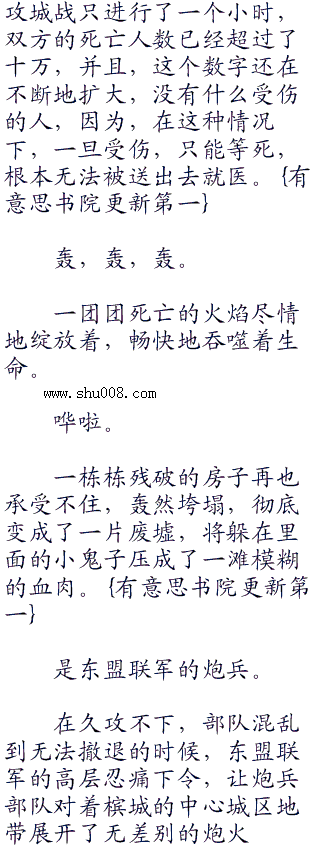 攻城战只进行了一个小时，
双方的死亡人数已经超过了
十万，并且，这个数字还在
不断地扩大，没有什么受伤
的人，因为，在这种情况
下，一旦受伤，只能等死，
根本无法被送出去就医。{有
意思书院更新第一}
轰，轰，轰。
一团团死亡的火焰尽情
地绽放着，畅快地吞噬着生
命。
www.shu008.com
哗啦。
一栋栋残破的房子再也
承受不住，轰然垮塌，彻底
变成了一片废墟，将躲在里
面的小鬼子压成了一滩模糊
的血肉。{有意思书院更新第
一}
是东盟联军的炮兵。
在久攻不下，部队混乱
到无法撤退的时候，东盟联
军的高层忍痛下令，让炮兵
部队对着槟城的中心城区地
带展开了无差别的炮火